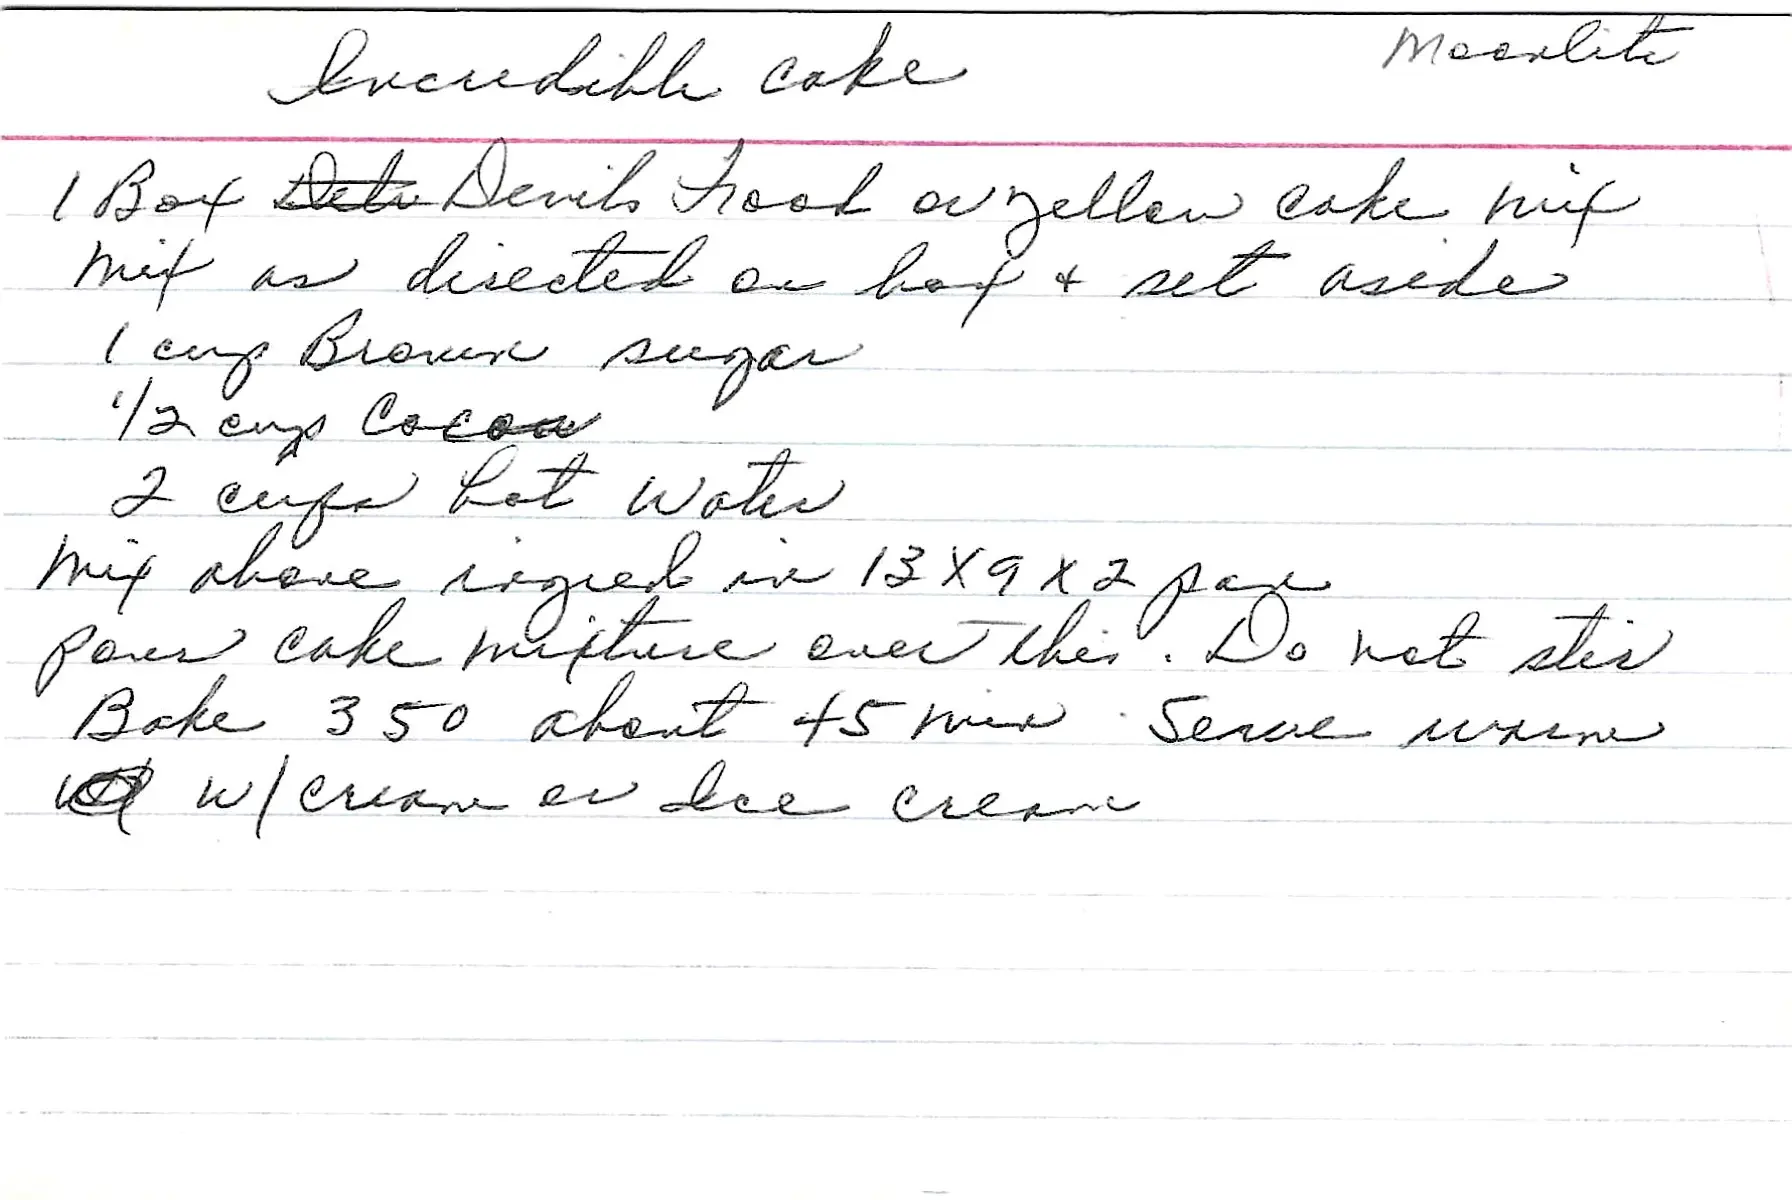 Incredible cake
Moonlite
1 Box Devils Food or yellow cake mix
Mix as directed on box + set aside
1 cup Brown sugar
1/2 cup Cocoa
2 cups hot water
Mix above ingred in 13 X 9 X 2 pan
pour cake mixture over this. Do not stir
Bake 350 about 45 min. Serve warm
w/cream or Ice cream